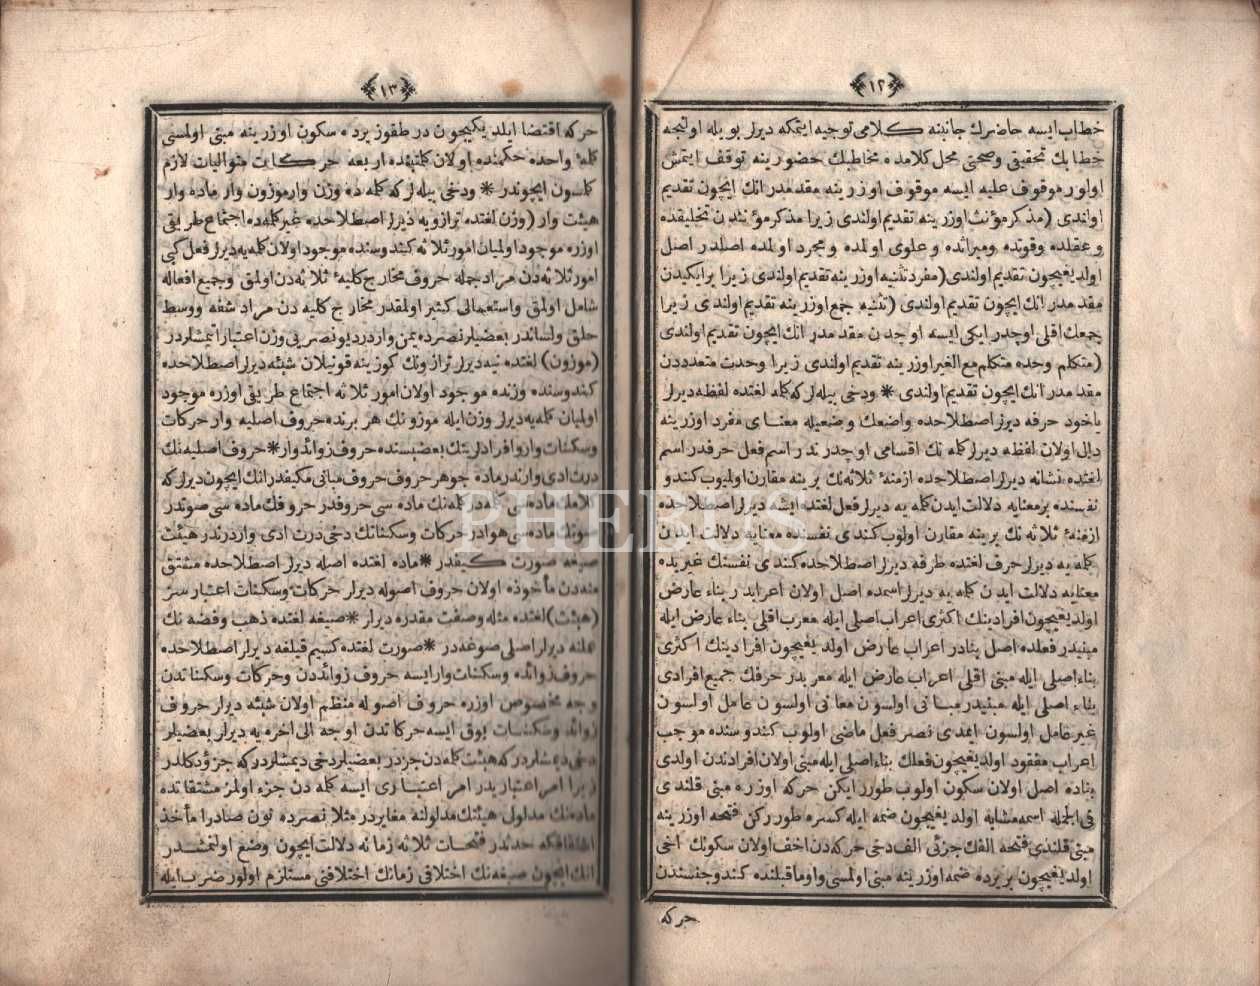 ١٢
خطاب ايسه حاضرك جانبنه كلامى توجيه ايتمكه ديرلر بويله اولنيجه
خطابك تحقيقى وصحتى محل كلامده مخاطبك حضورينه توقف ايتمش
اولور موقوف عليه ايسه موقوف اوزرينه مقدمدر انك ايچون تقديم
اولندى (مذكر مؤنث اوزرينه تقديم اولندى زيرا مذكر مؤنثدن تخليقده
وعقلده وقوتده وميراثده وعلوى اولمده ومجرد اولمده اصلدر اصل
اولديغيچون تقديم اولندى (مفرد تثنيه اوزرينه تقديم اولندى زيرا بر ايكيدن
مقدمدر انك ايچون تقديم اولندى (تثنيه جمع اوزرينه تقديم اولندى زيرا
جمعك اقلى اوچدر ايكى ايسه اوچدن مقدمدر انك ايچون تقديم اولندى
(متكلم وحده متكلم مع الغير اوزرينه تقديم اولندى زيرا وحدت متعدددن
مقدمدر انك ايچون تقديم اولندى * ودخى بيله لركه كلمه لغتده لفظه ديرلر
ياخود حرفه ديرلر اصطلاحده واضعك وضعيله معناى مفرد اوزرينه
دال اولان لفظه ديرلر كلمه نك اقسامى اوچدر اسم فعل حرفدر اسم
لغتده نشانه ديرلر اصطلاحده ازمنهٔ ثلاثه نك برينه مقارن اولميوب كندو
نفسنده بر معنايه دلالت ايدن كلمه يه ديرلر فعل لغتده ايشه ديرلر اصطلاحده
ازمنهٔ ثلاثه نك برينه مقارن اولوب كندى نفسنده معنايه دلالت ايدن
كلمه يه ديرلر حرف لغتده طرفه ديرلر اصطلاحده كندى نفسنك غيريده
معنايه دلالت ايدن كلمه يه ديرلر اسمده اصل اولان اعرابدر بناء عارض
اولديغيچون افرادينك اكثرى اعراب اصلى ايله معرب اقلى بناء عارض ايله
مبنيدر فعلده اصل بنادر اعراب عارض اولديغيچون افرادينك اكثرى
بناء اصلى ايله مبنى اقلى اعراب عارض ايله معربدر حرفك جميع افرادى
بناء اصلى ايله مبنيدر مبانى اولسون معانى اولسون عامل اولسون
غير عامل اولسون ايمدى نصر فعل ماضى اولوب كندوسنده موجب
اعراب مفقود اولديغيچون فعلك بناء اصلى ايله مبنى اولان افرادندن اولدى
بناده اصل اولان سكون اولوب طورر ايكن حركه اوزره مبنى قلندى
فى الجمله اسمه مشابه اولديغيچون ضمه ايله كسره طوررکن فتحه اوزرينه
مبنى قلندى فتحه الفك جزئى الف دخى حركه دن اخف اولان سكونك اخى
اولديغيچون بر يرده ضمه اوزرينه مبنى اولمسى واو ماقبلنده كندو جنسندن
حركه
١٣
حركه اقتضا ايلديكيچون در طقوز يرده سكون اوزرينه مبنى اولمسى
كلمهٔ واحده حكمنده اولان كلمتينده اربعه حركات متواليات لازم
كلمسون ايچوندر * ودخى بيله لركه كلمه ده وزن وار موزون وار ماده وار
هيئت وار (وزن لغتده ترازويه ديرلر اصطلاحده غير كلمه ده اجتماع طريقى
اوزره موجود اوليان امور ثلاثه كندوسنده موجود اولان كلمه يه ديرلر فعل كبى
امور ثلاثه دن مراد جمله حروف مخارج كليهٔ ثلاثه دن اولمق وجميع افعاله
شامل اولمق واستعمالى كثير اولمقدر مخارج كليه دن مراد شفه ووسط
حلق ولساندر بعضيلر نصرده يمن واردر ديو نصر يى وزن اعتبار ايتمشلردر
(موزون) لغتده نيه ديرلر ترازونك كوزينه قونيلان شيئه ديرلر اصطلاحده
كندوسنده وزنده موجود اولان امور ثلاثه اجتماع طريقى اوزره موجود
اوليان كلمه يه ديرلر وزن ايله موزونك هر برنده حروف اصليه وار حركات
وسكنات وار وافرادلرينك بعضيسنده حروف زوائد وار * حروف اصليه نك
درت ادى واردر ماده جوهر حروف حروف مبانى مكيفدر انك ايچون ديرلركه
كلامك ماده سى كلمه در كلمه نك ماده سى حروفدر حروفك ماده سى صوتدر
صوتك ماده سى هوادر حركات وسكناتك دخى درت ادى واردر هيئت
صيغه صورت كيفدر * ماده لغتده اصله ديرلر اصطلاحده مشتق
منه دن مأخوذه اولان حروف اصوله ديرلر حركات وسكنات اعتبارسز
(هيئت) لغتده مثله وصفت مقدره ديرلر * صيغه لغتده ذهب وفضه نك
عملنه ديرلر اصلى صوغه در * صورت لغتده كسيم قيلغه ديرلر اصطلاحده
حروف زوائده وسكنات وار ايسه حروف زوائددن وحركات وسكناتدن
وجه مخصوص اوزره حروف اصوله منظم اولان شيئه ديرلر حروف
زوائد وسكنات يوق ايسه حركاتدن اوجه الى اخره يه ديرلر بعضيلر
دخى ديمشلردركه هيئت كلمه دن جزدر بعضيلر دخى ديمشلردركه جزؤ دكلدر
زيرا امر اعتباريدر امر اعتبارى ايسه كلمه دن جزء اولمز مشتقاتده
ماده نك مدلولى هيئتك مدلولنه مغايردر مثلا نصرده نون صاد را مأخذ
اشتقاقكه حدثدر فتحات ثلاثه زمانه دلالت ايچون وضع اولنمشدر
انك ايچون صيغه نك اختلافى زمانك اختلافنى مستلزم اولور ضرب ايله
PHEBUS